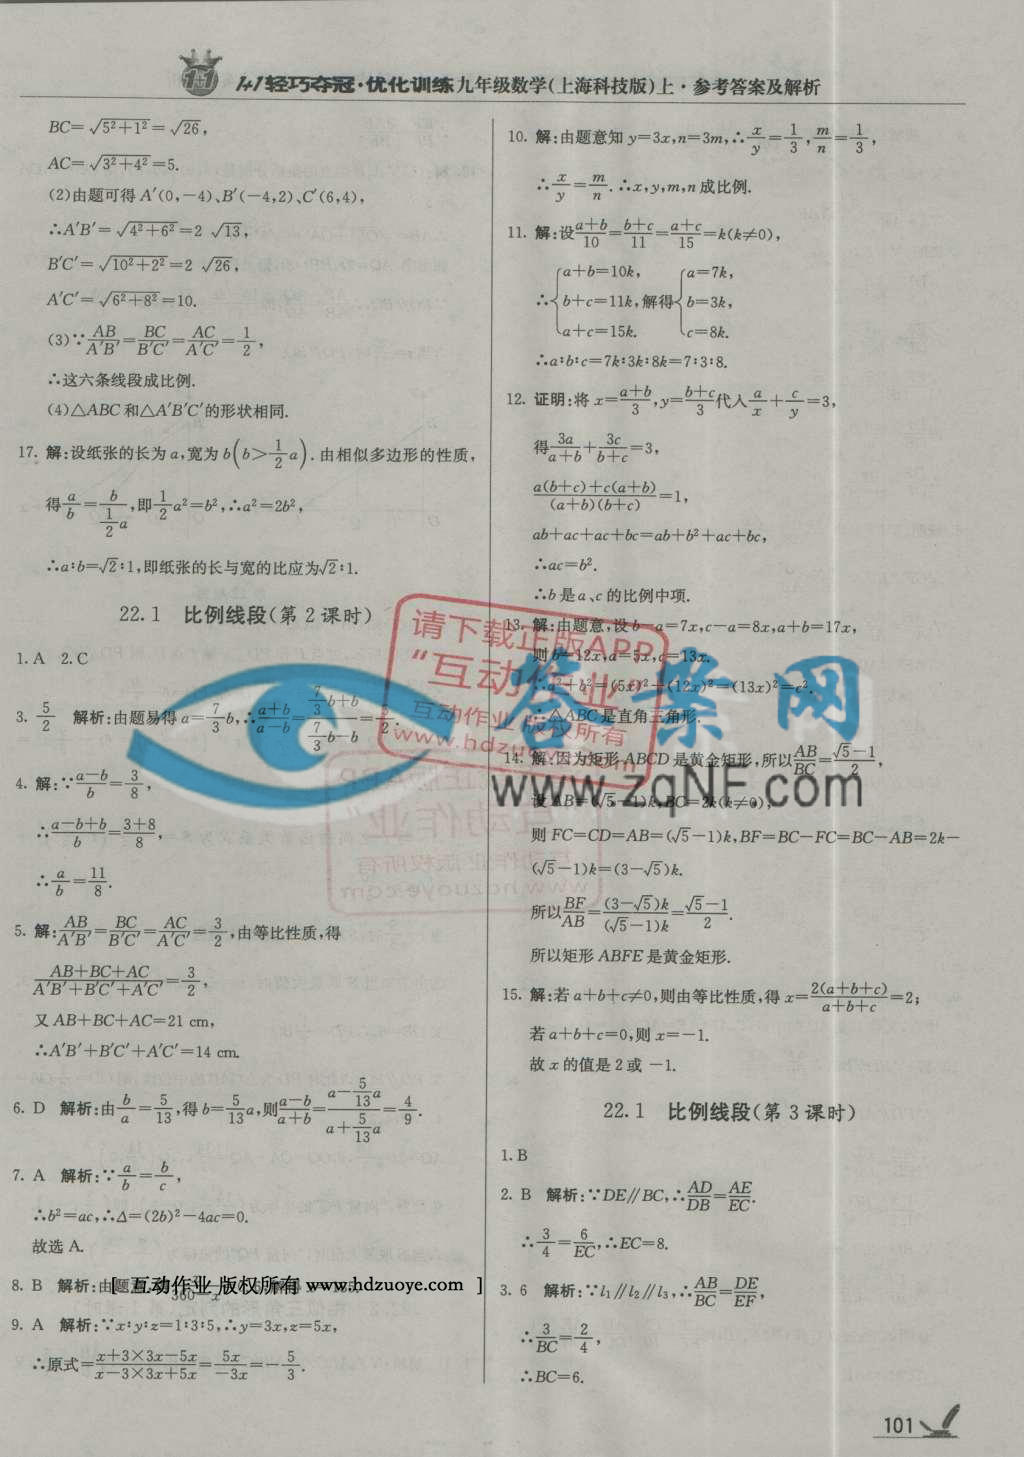 1+1轻巧夺冠·优化训练九年级数学(上海科技版)上·参考答案及解析
BC=√5²+1²=√26,
AC=√3²+4²=5.
(2)由题可得 A′(0,-4)、B′(-4,2)、C′(6,4),
∴A′B′=√4²+6²=2√13,
B′C′=√10²+2²=2√26,
A′C′=√6²+8²=10.
(3)∵AB/A′B′=BC/B′C′=AC/A′C′=1/2,
∴这六条线段成比例.
(4)△ABC 和△A′B′C′的形状相同.
17. 解:设纸张的长为 a,宽为 b(b>1/2a). 由相似多边形的性质,
得 a/b=b/(1/2a),即 1/2a²=b²,∴a²=2b²,
∴a∶b=√2∶1,即纸张的长与宽的比应为√2∶1.
22.1 比例线段(第 2 课时)
1. A 2. C
3. 5/2 解析:由题易得 a=7/3b,∴(a+b)/(a-b)=(7/3b+b)/(7/3b-b)=5/2.
4. 解:∵(a-b)/b=3/8,
∴(a-b+b)/b=(3+8)/8,
∴a/b=11/8.
5. 解:AB/A′B′=BC/B′C′=AC/A′C′=3/2,由等比性质,得
(AB+BC+AC)/(A′B′+B′C′+A′C′)=3/2,
又 AB+BC+AC=21 cm,
∴A′B′+B′C′+A′C′=14 cm.
6. D 解析:由 b/a=5/13,得 b=5/13a,则(a-b)/(a+b)=(a-5/13a)/(a+5/13a)=4/9.
7. A 解析:∵a/b=b/c,
∴b²=ac,∴Δ=(2b)²-4ac=0.
故选 A.
8. B 解析:由题
[ 互动作业 版权所有 www.hdzuoye.com ]
9. A 解析:∵x∶y∶z=1∶3∶5,∴y=3x,z=5x,
∴原式=(x+3×3x-5x)/(x-3×3x+5x)=5x/-3x=-5/3.
10. 解:由题意知 y=3x,n=3m,∴x/y=1/3,m/n=1/3,
∴x/y=m/n.∴x,y,m,n 成比例.
11. 解:设(a+b)/10=(b+c)/11=(a+c)/15=k(k≠0),
∴{a+b=10k, b+c=11k, a+c=15k. 解得{a=7k, b=3k, c=8k.
∴a∶b∶c=7k∶3k∶8k=7∶3∶8.
12. 证明:将 x=(a+b)/3,y=(b+c)/3代入 a/x+c/y=3,
得 3a/(a+b)+3c/(b+c)=3,
(a(b+c)+c(a+b))/((a+b)(b+c))=1,
ab+ac+ac+bc=ab+b²+ac+bc,
∴ac=b².
∴b 是 a、c 的比例中项.
13. 解:由题意,设 b-a=7x,c-a=8x,a+b=17x,
则 b=12x,a=5x,c=13x.
∴a²+b²=(5x)²+(12x)²=(13x)²=c².
∴△ABC 是直角三角形.
14. 解:因为矩形 ABCD 是黄金矩形,所以 AB/BC=(√5-1)/2,
设 AB=(√5-1)k,BC=2k(k≠0),
则 FC=CD=AB=(√5-1)k,BF=BC-FC=BC-AB=2k-
(√5-1)k=(3-√5)k.
所以 BF/AB=(3-√5)k/(√5-1)k=(√5-1)/2.
所以矩形 ABFE 是黄金矩形.
15. 解:若 a+b+c≠0,则由等比性质,得 x=2(a+b+c)/(a+b+c)=2;
若 a+b+c=0,则 x=-1.
故 x 的值是 2 或 -1.
22.1 比例线段(第 3 课时)
1. B
2. B 解析:∵DE∥BC,∴AD/DB=AE/EC.
∴3/4=6/EC,∴EC=8.
3. 6 解析:∵l₁∥l₂∥l₃,∴AB/BC=DE/EF,
∴3/BC=2/4,
∴BC=6.
101
请下载正版APP
“互动作业”
互动作业 版权所有
www.hdzuoye.com
答案网
www.zqNF.com